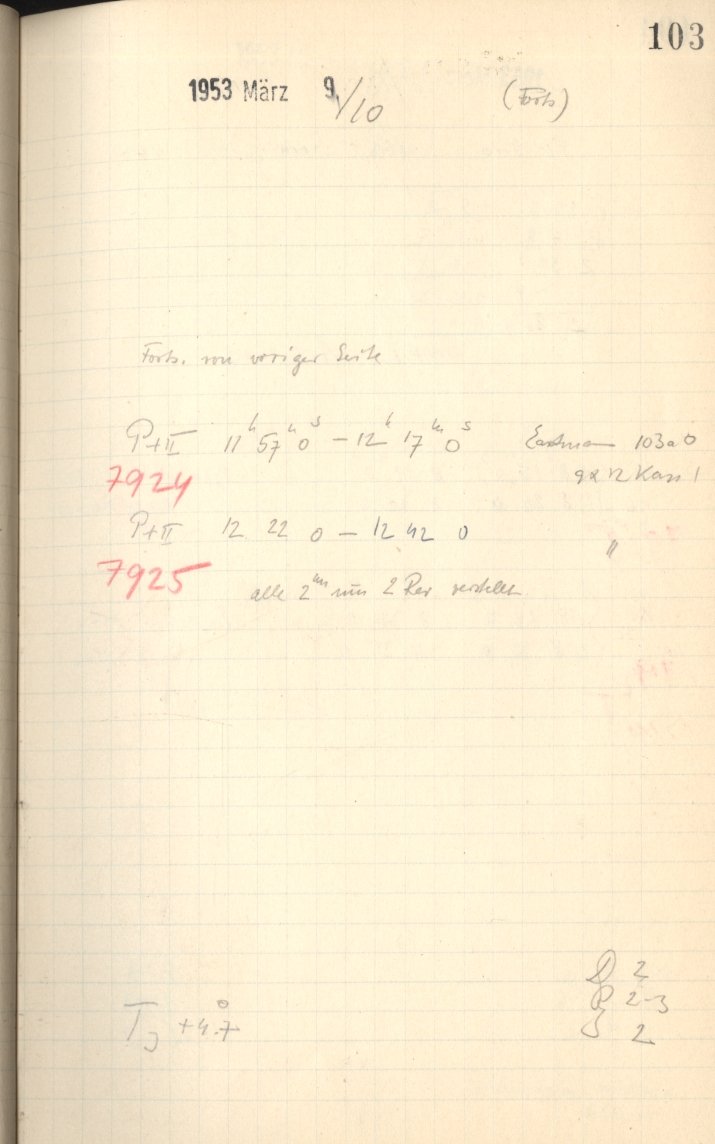 103
1953 März 9./10 (Forts)
Forts. von voriger Seite
P+II 11h 57m 0s – 12h 17m 0s Eastman 103a0
7924 9x12 Kass 1
P+II 12 22 0 – 12 42 0 "
7925
alle 2m um 2 Rev verstellt
TJ +4.7°
D 2
P 2-3
J 2